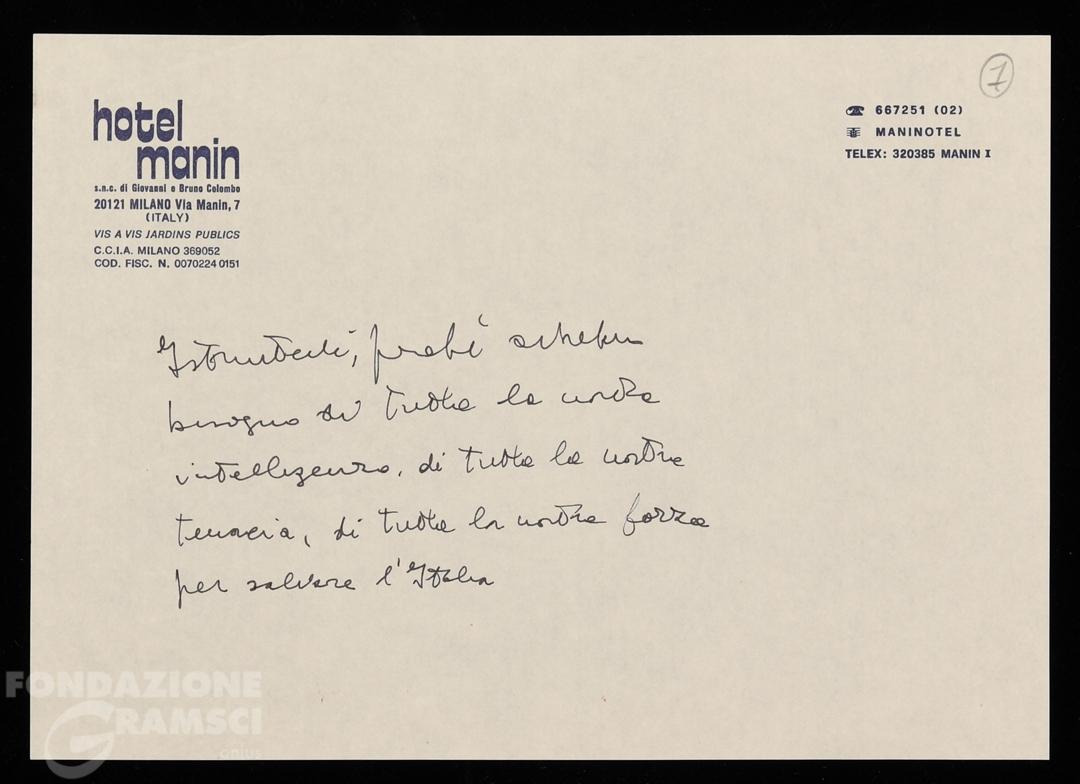 1
hotel
manin
s.n.c. di Giovanni e Bruno Colombo
20121 MILANO Via Manin, 7
(ITALY)
VIS A VIS JARDINS PUBLICS
C.C.I.A. MILANO 369052
COD. FISC. N. 0070224 0151
667251 (02)
MANINOTEL
TELEX: 320385 MANIN I
Istruitevi, perché avremo
bisogno di tutta la nostra
intelligenza, di tutta la nostra
tenacia, di tutta la nostra forza
per salvare l'Italia
FONDAZIONE
GRAMSCI
onlus